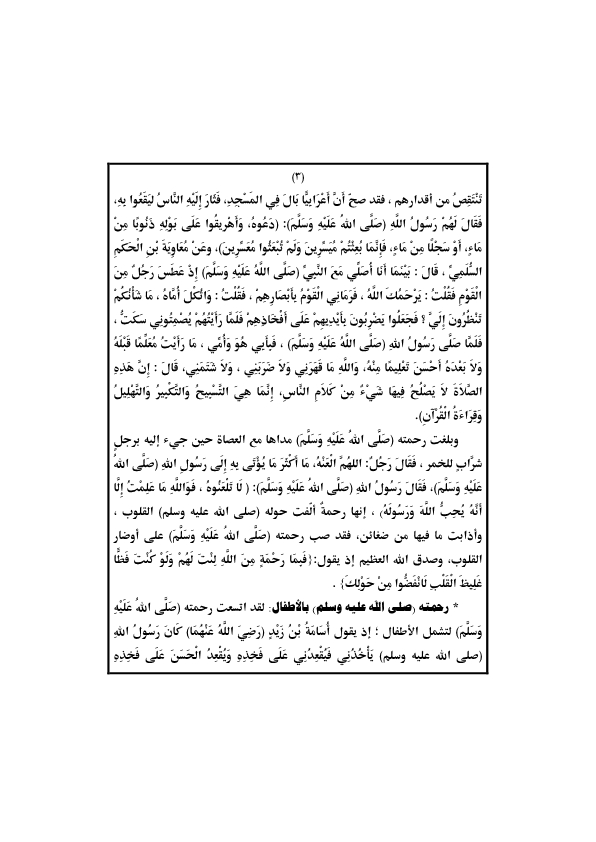 (٣)
تَنْتَقِصُ من أقدارهم ، فقد صحّ أَنَّ أَعْرَابِيًّا بَالَ فِي المَسْجِدِ، فَثَارَ إِلَيْهِ النَّاسُ ليَقَعُوا بِهِ،
فَقَالَ لَهُمْ رَسُولُ اللَّهِ (صَلَّى اللهُ عَلَيْهِ وَسَلَّمَ): (دَعُوهُ، وَأَهْرِيقُوا عَلَى بَوْلِهِ ذَنُوبًا مِنْ
مَاءٍ، أَوْ سَجْلًا مِنْ مَاءٍ، فَإِنَّمَا بُعِثْتُمْ مُيَسِّرِينَ وَلَمْ تُبْعَثُوا مُعَسِّرِينَ)، وعَنْ مُعَاوِيَةَ بْنِ الْحَكَمِ
السُّلَمِيِّ ، قَالَ : بَيْنَمَا أَنَا أُصَلِّي مَعَ النَّبِيِّ (صَلَّى اللَّهُ عَلَيْهِ وَسَلَّمَ) إِذْ عَطَسَ رَجُلٌ مِنَ
الْقَوْمِ فَقُلْتُ : يَرْحَمُكَ اللَّهُ ، فَرَمَانِي الْقَوْمُ بِأَبْصَارِهِمْ ، فَقُلْتُ : وَاثُكْلَ أُمَّاهُ ، مَا شَأْنُكُمْ
تَنْظُرُونَ إِلَيَّ ؟ فَجَعَلُوا يَضْرِبُونَ بِأَيْدِيهِمْ عَلَى أَفْخَاذِهِمْ فَلَمَّا رَأَيْتُهُمْ يُصَمِّتُونِي سَكَتُّ ،
فَلَمَّا صَلَّى رَسُولُ اللهِ (صَلَّى اللَّهُ عَلَيْهِ وَسَلَّمَ) ، فَبِأَبِي هُوَ وَأُمِّي ، مَا رَأَيْتُ مُعَلِّمًا قَبْلَهُ
وَلَا بَعْدَهُ أَحْسَنَ تَعْلِيمًا مِنْهُ، وَاللَّهِ مَا قَهَرَنِي وَلاَ ضَرَبَنِي ، وَلاَ شَتَمَنِي، قَالَ : إِنَّ هَذِهِ
الصَّلاَةَ لاَ يَصْلُحُ فِيهَا شَيْءٌ مِنْ كَلاَمِ النَّاسِ، إِنَّمَا هِيَ التَّسْبِيحُ وَالتَّكْبِيرُ وَالتَّهْلِيلُ
وَقِرَاءَةُ الْقُرْآنِ).
وبلغت رحمته (صَلَّى اللهُ عَلَيْهِ وَسَلَّمَ) مداها مع العصاة حين جيء إليه برجلٍ
شرَّابٍ للخمر ، فَقَالَ رَجُلٌ: اللهُمَّ الْعَنْهُ، مَا أَكْثَرَ مَا يُؤْتَى بِهِ إِلَى رَسُولِ اللهِ (صَلَّى اللهُ
عَلَيْهِ وَسَلَّمَ)، فَقَالَ رَسُولُ اللهِ (صَلَّى اللهُ عَلَيْهِ وَسَلَّمَ): ( لَا تَلْعَنُوهُ ، فَوَاللَّهِ مَا عَلِمْتُ إِلَّا
أَنَّهُ يُحِبُّ اللَّهَ وَرَسُولَهُ) ، إنها رحمةٌ ألّفت حوله (صلى الله عليه وسلم) القلوب ،
وأذابت ما فيها من ضغائن، فقد صب رحمته (صَلَّى اللهُ عَلَيْهِ وَسَلَّمَ) على أوضار
القلوب، وصدق الله العظيم إذ يقول:{فَبِمَا رَحْمَةٍ مِنَ اللَّهِ لِنْتَ لَهُمْ وَلَوْ كُنْتَ فَظًّا
غَلِيظَ الْقَلْبِ لَانْفَضُّوا مِنْ حَوْلِكَ} .
* رحمته (صلى الله عليه وسلم) بالأطفال: لقد اتسعت رحمته (صَلَّى اللهُ عَلَيْهِ
وَسَلَّمَ) لتشمل الأطفال ؛ إذ يقول أُسَامَةُ بْنُ زَيْدٍ (رَضِيَ اللَّهُ عَنْهُمَا) كَانَ رَسُولُ اللهِ
(صلى الله عليه وسلم) يَأْخُذُنِي فَيُقْعِدُنِي عَلَى فَخِذِهِ وَيُقْعِدُ الْحَسَنَ عَلَى فَخِذِهِ